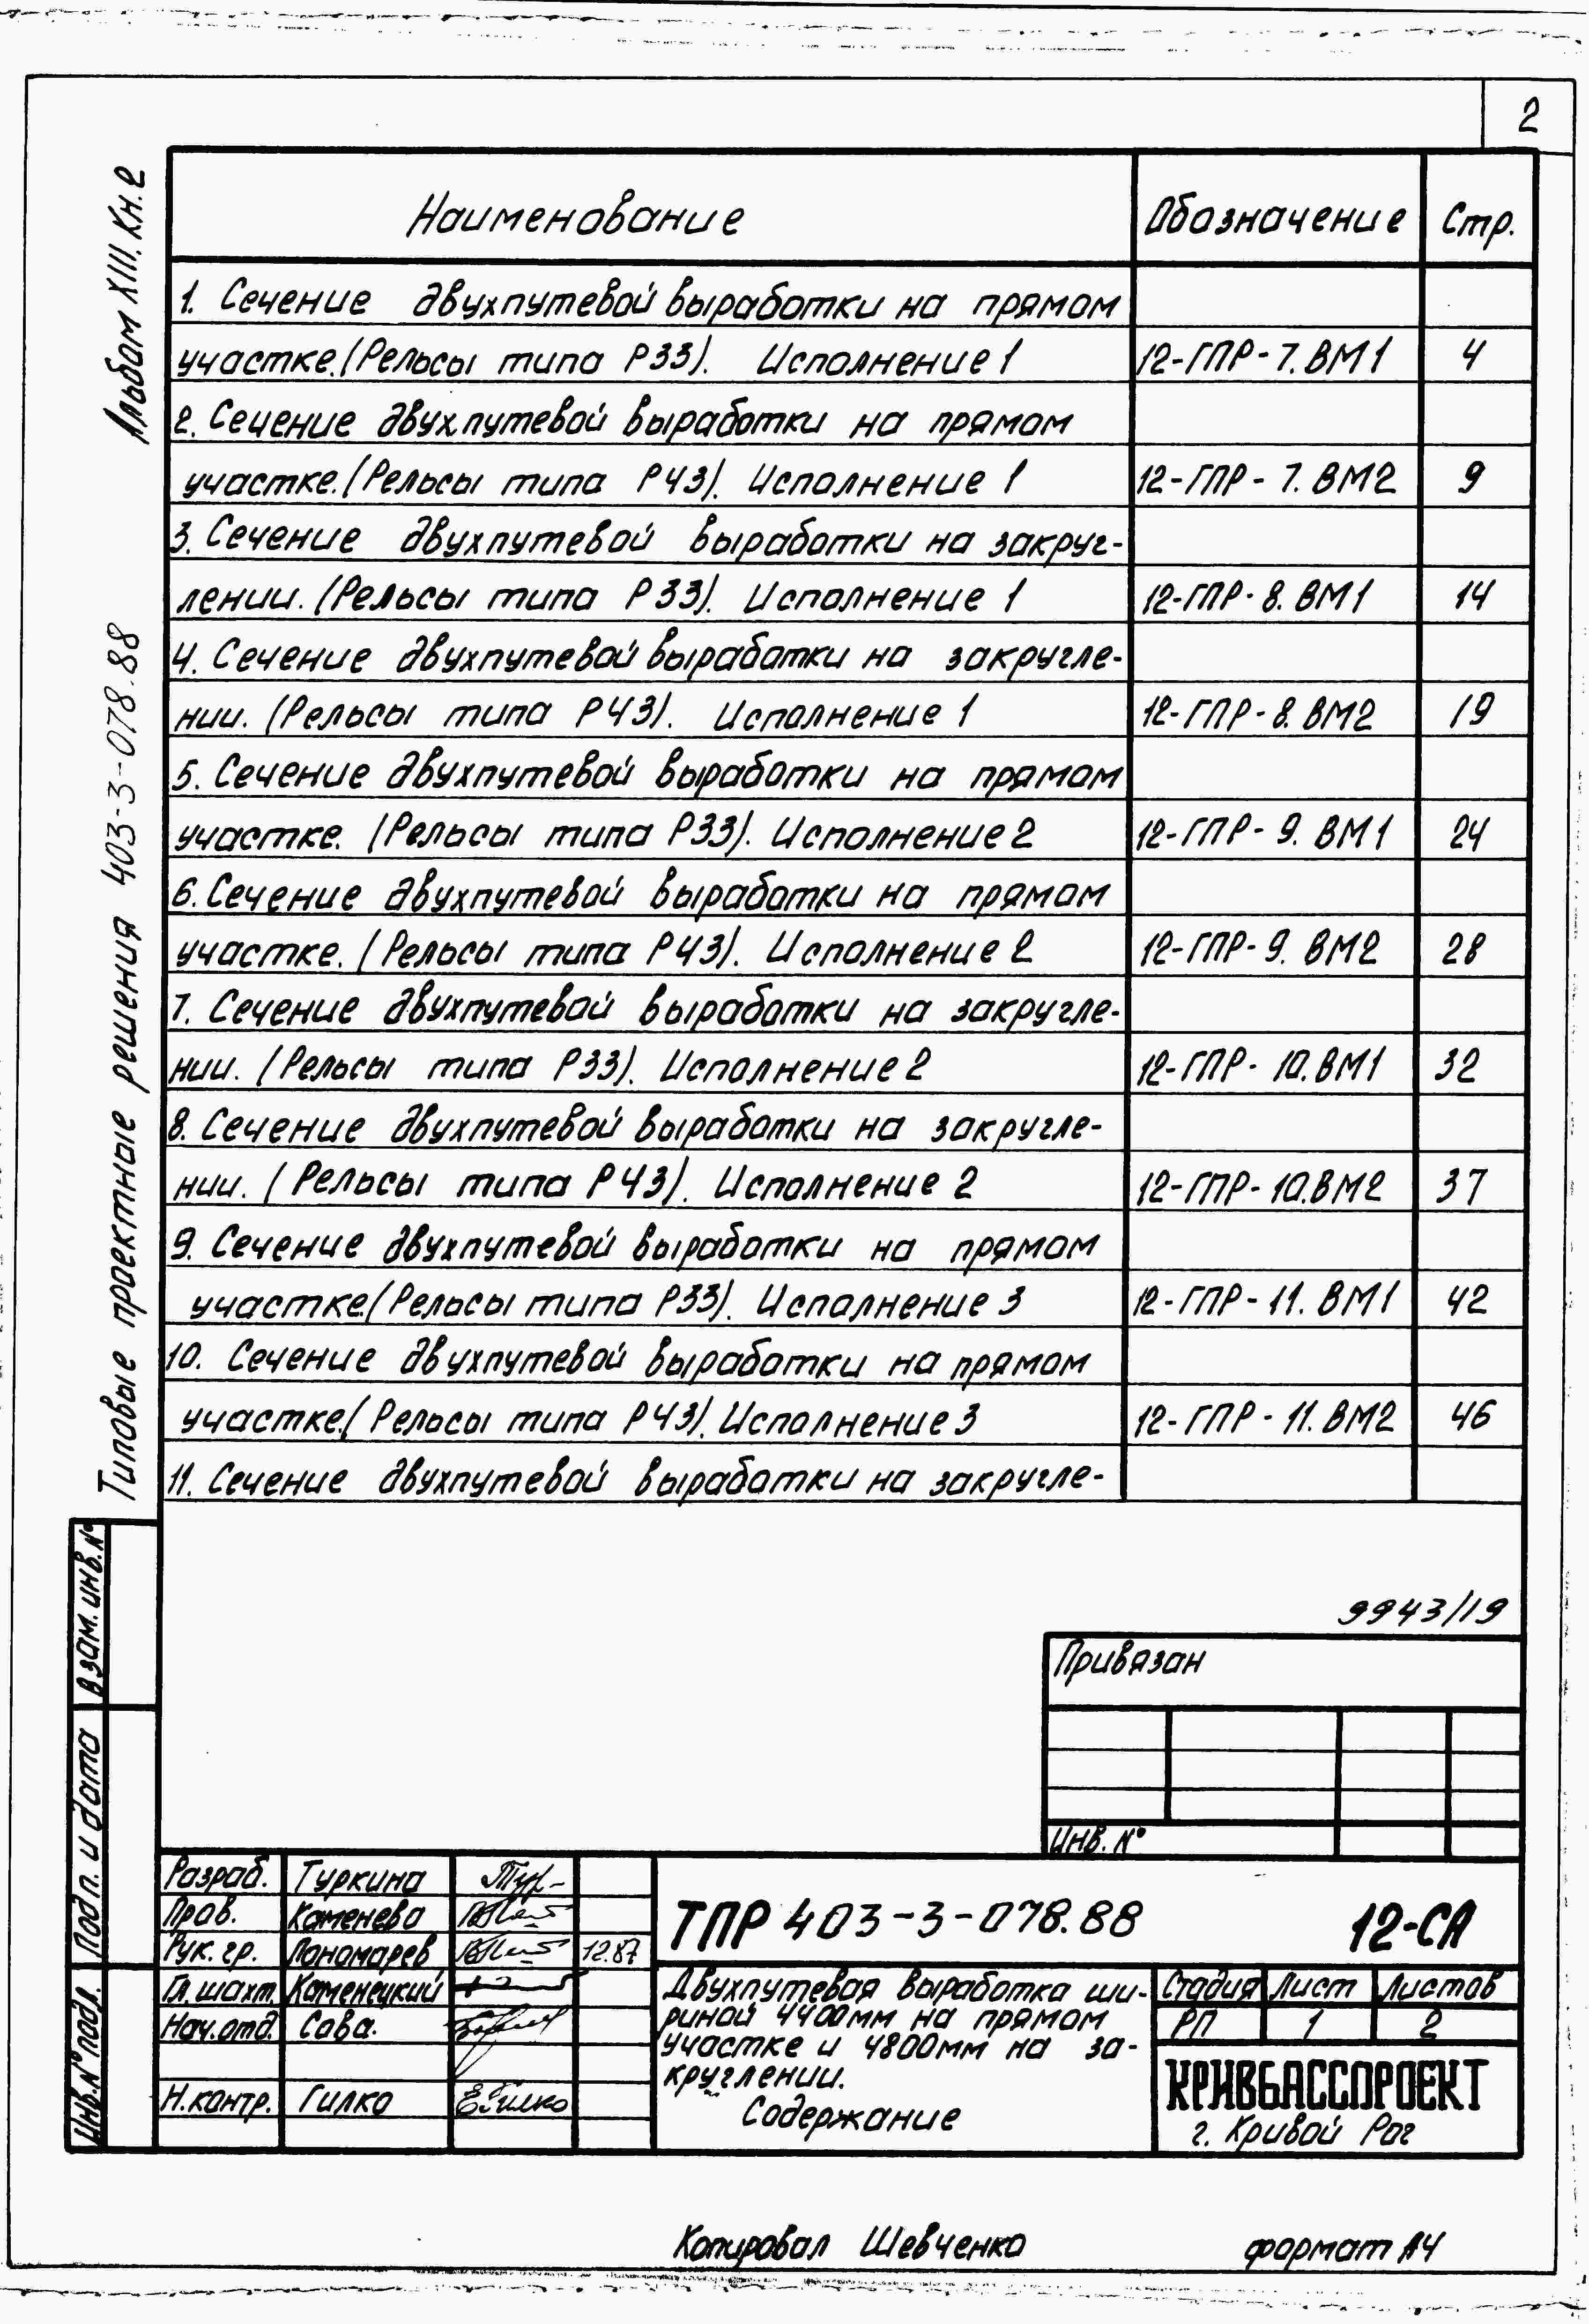 2
Альбом XIII. Кн.2
Типовые проектные решения 403-3-078.88
Наименование Обозначение Стр.
1. Сечение двухпутевой выработки на прямом
участке.(Рельсы типа Р33). Исполнение 1 12-ГПР-7.ВМ1 4
2. Сечение двухпутевой выработки на прямом
участке.(Рельсы типа Р43). Исполнение 1 12-ГПР-7.ВМ2 9
3. Сечение двухпутевой выработки на закруг-
лении.(Рельсы типа Р33). Исполнение 1 12-ГПР-8.ВМ1 14
4. Сечение двухпутевой выработки на закругле-
нии.(Рельсы типа Р43). Исполнение 1 12-ГПР-8.ВМ2 19
5. Сечение двухпутевой выработки на прямом
участке.(Рельсы типа Р33). Исполнение 2 12-ГПР-9.ВМ1 24
6. Сечение двухпутевой выработки на прямом
участке.(Рельсы типа Р43). Исполнение 2 12-ГПР-9.ВМ2 28
7. Сечение двухпутевой выработки на закругле-
нии.(Рельсы типа Р33). Исполнение 2 12-ГПР-10.ВМ1 32
8. Сечение двухпутевой выработки на закругле-
нии.(Рельсы типа Р43). Исполнение 2 12-ГПР-10.ВМ2 37
9. Сечение двухпутевой выработки на прямом
участке.(Рельсы типа Р33). Исполнение 3 12-ГПР-11.ВМ1 42
10. Сечение двухпутевой выработки на прямом
участке.(Рельсы типа Р43). Исполнение 3 12-ГПР-11.ВМ2 46
11. Сечение двухпутевой выработки на закругле-
Взам. инв. №
Подп. и дата
Инв. № подл.
9943/19
Привязан
Инв. №
Разраб. Туркина Тур-
Пров. Каменева
Рук. гр. Пономарев 12.87
Гл. шахт. Каменецкий
Нач. отд. Сова.
Н. контр. Гилко Гилко
ТПР 403-3-078.88 12-СА
Двухпутевая выработка ши-
риной 4400мм на прямом
участке и 4800мм на за-
круглении.
Содержание
Стадия Лист Листов
РП 1 2
КРИВБАССПРОЕКТ
г. Кривой Рог
Копировал Шевченко формат А4